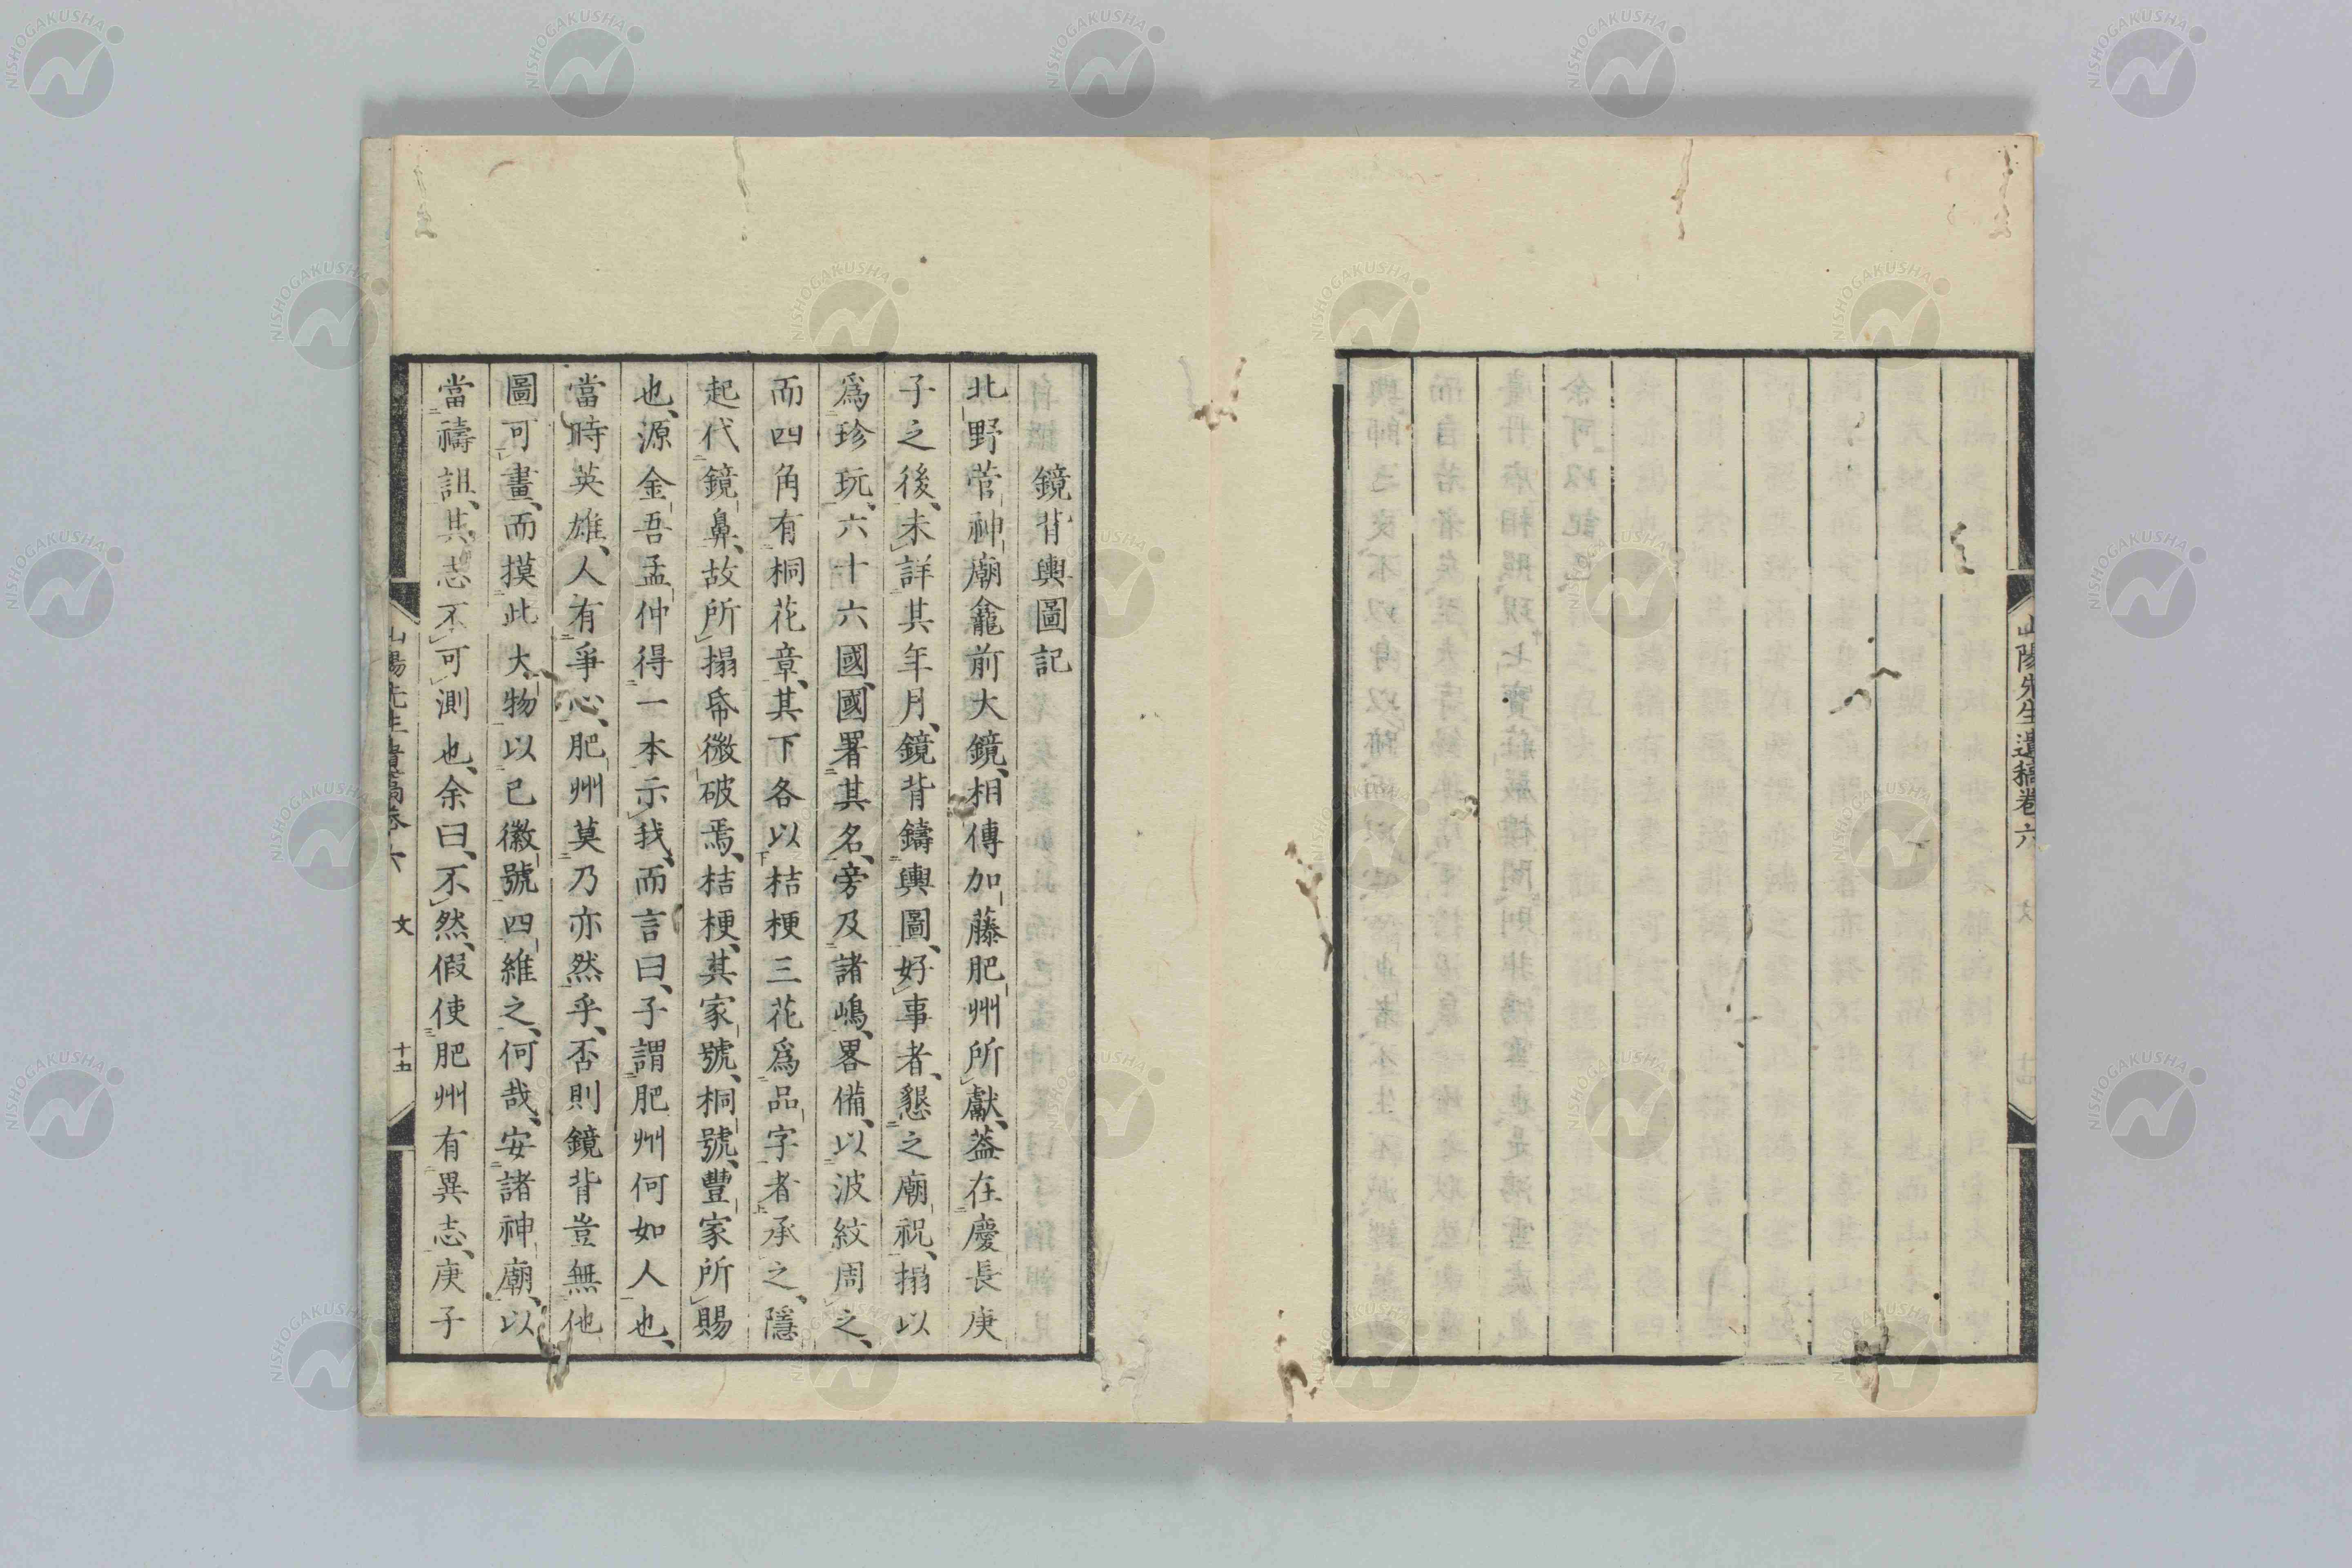 山陽先生遺稿卷六
鏡背輿圖記
北野菅神廟龕前大鏡、相傳加藤肥州所獻、蓋在慶長庚
子之後、未詳其年月、鏡背鑄輿圖、好事者、懇之廟祝、搨以
爲珍玩、六十六國、國署其名、旁及諸嶋、畧備、以波紋周之、
而四角有桐花章、其下各以桔梗三花爲品字者承之、隱
起代鏡鼻、故所搨帋微破焉、桔梗、其家號、桐號、豐家所賜
也、源金吾孟仲得一本示我、而言曰、子謂肥州何如人也、
當時英雄、人有爭心、肥州莫乃亦然乎、否則鏡背豈無他
圖可畫、而摸此大物以已徽號四維之、何哉、安諸神廟、以
當禱詛、其志不可測也、余曰、不然、假使肥州有異志、庚子
山陽先生遺稿卷六 文 十五
NISHOGAKUSHA